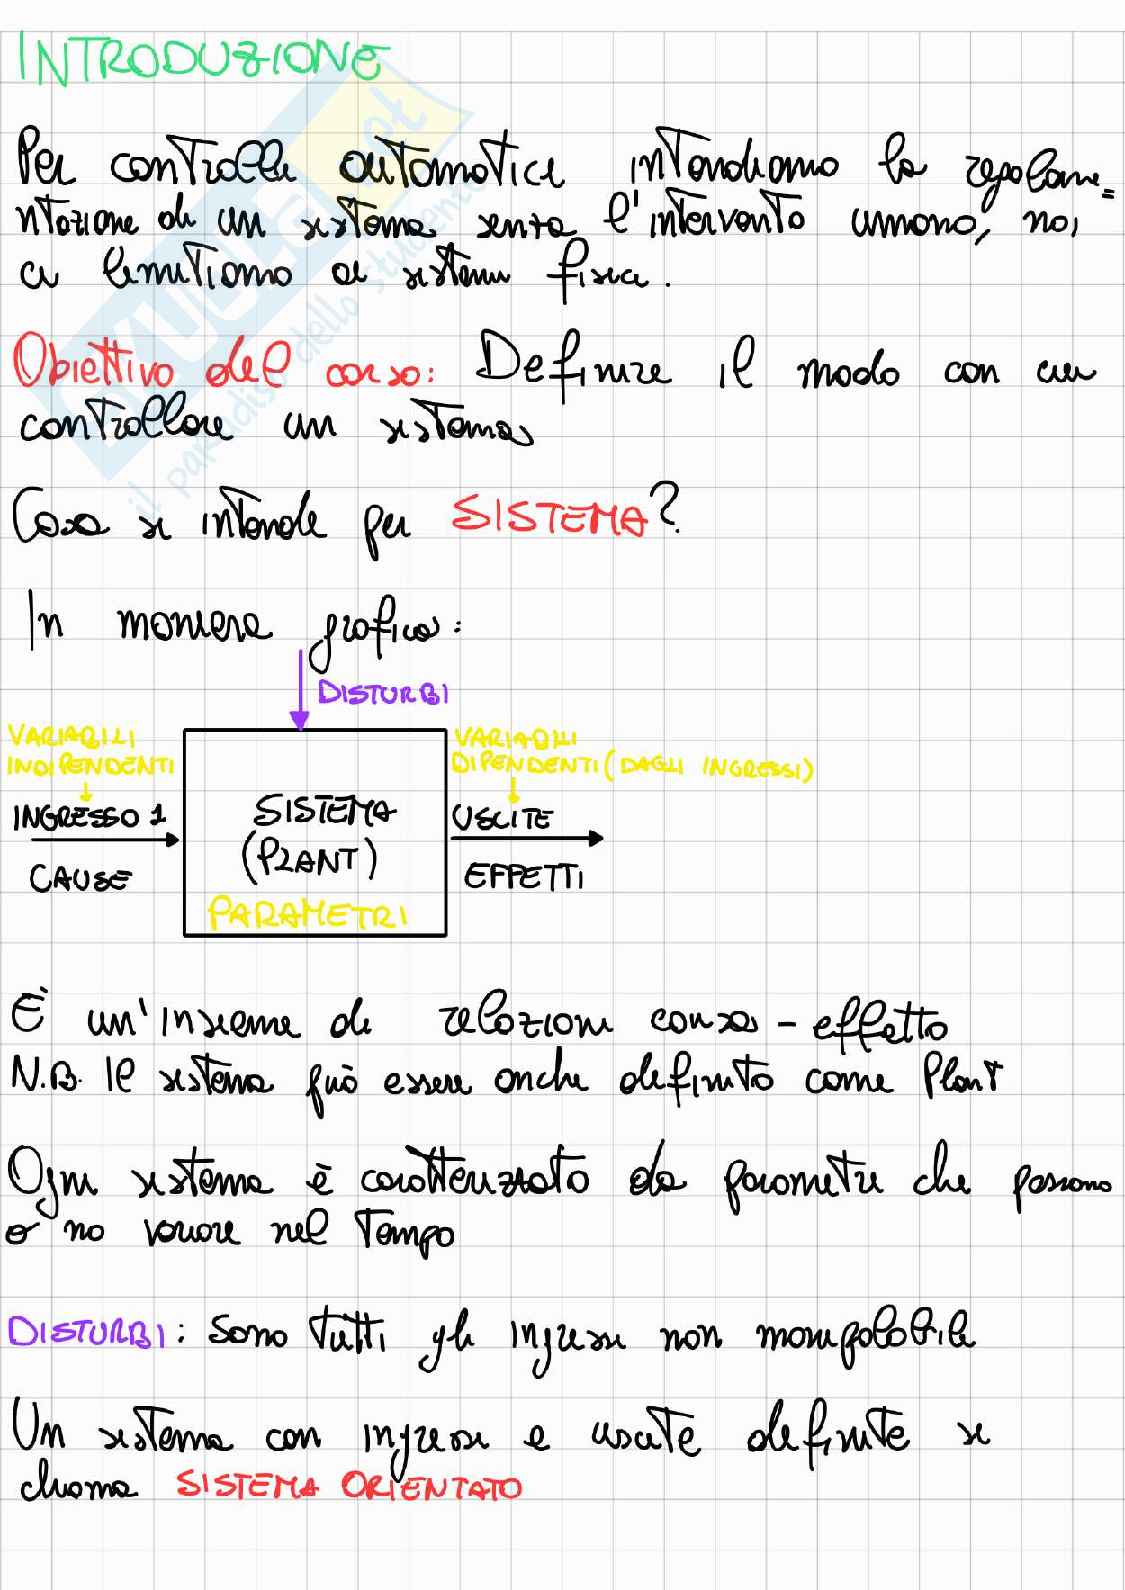 INTRODUZIONE
Per controlli automatici intendiamo la regolame=
ntazione di un sistema senza l'intervento umano, noi
ci limitiamo ai sistemi fisici.
Obiettivo del corso: Definire il modo con cui
controllare un sistema
Cosa si intende per SISTEMA?
In maniera grafica:
DISTURBI
VARIABILI
INDIPENDENTI
INGRESSO 1
CAUSE
SISTEMA
(PLANT)
PARAMETRI
VARIABILI
DIPENDENTI (DAGLI INGRESSI)
USCITE
EFFETTI
È un'insieme di relazioni causa - effetto
N.B. Il sistema può essere anche definito come Plant
Ogni sistema è caratterizzato da parametri che possono
o no variare nel tempo
DISTURBI: Sono tutti gli ingressi non manipolabili
Un sistema con ingressi e uscite definite si
chiama SISTEMA ORIENTATO
il paradiso dello studente